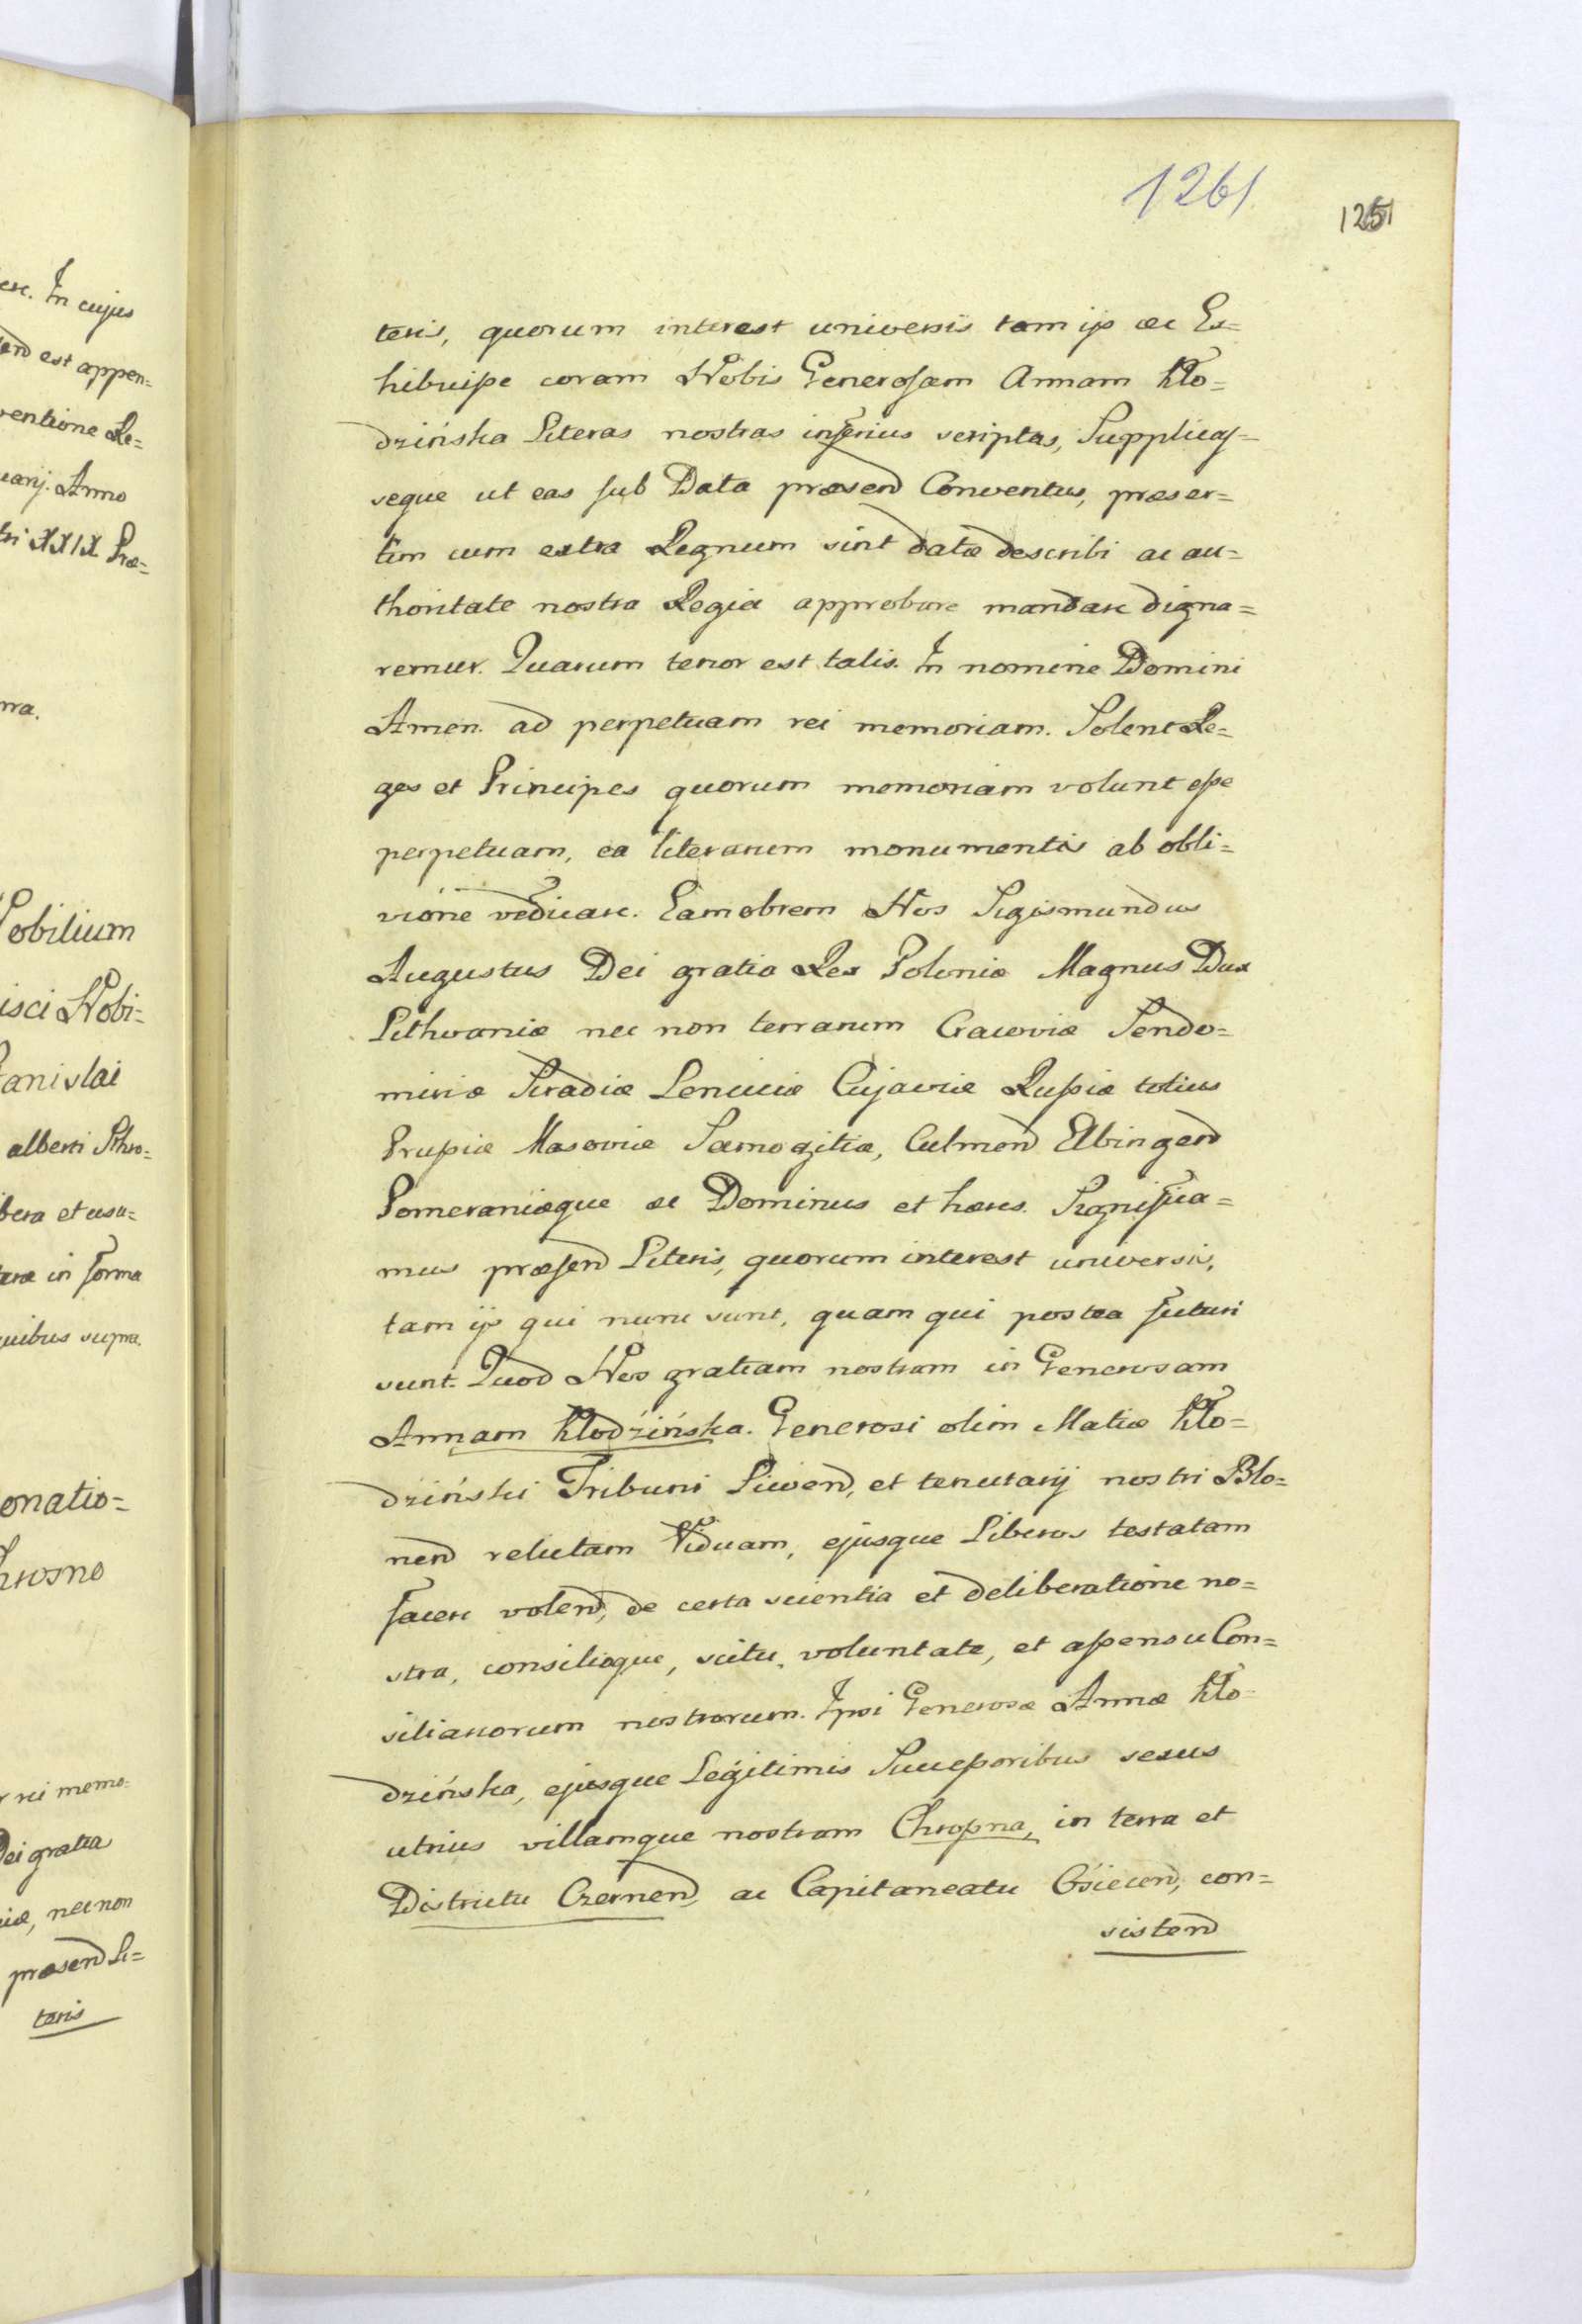 1261
1251
teris, quorum interest universis tam ijs ac Ex=
hibuisse coram Nobis Generosam Annam Kło=
dzińska Literas nostras inferius scriptas, Supplicas=
seque ut eas sub Data præsend Conventus, præser=
tim cum extra Regnum sint datæ describi ac au=
thoritate nostra Regia approbare mandare digna=
remur. Quarum tenor est talis. In nomine Domini
Amen. ad perpetuam rei memoriam. Solent Re=
ges et Principes quorum memoriam volunt esse
perpetuam, ea literarum monumentis ab obli=
vione vedicare. Eamobrem Nos Sigismundus
Augustus Dei gratia Rex Poloniæ Magnus Dux
Lithvaniæ nec non terrarum Cracoviæ Sendo=
miriæ Siradiæ Lenciciæ Cujaviæ Russiæ totius
Prussiæ Masoviæ Samogitiæ, Culmend Elbingend
Pomeraniæque ac Dominus et hæres. Significa=
mus præsend Literis, quorum interest universis,
tam ijs qui nunc sunt, quam qui postea futuri
sunt. Quod Nos gratiam nostram in Generosam
Annam Kłodzińska. Generosi olim Matiæ Kło=
dziński Tribuni Livend, et tenutarij nostri Blo=
nend relictam Viduam, ejusque Liberos testatam
facere volend, de certa scientia et deliberatione no=
stra, consilioque, scitu, voluntate, et assensu Con=
siliariorum nostrorum. Ipsi Generosæ Annæ Kło=
dzińska, ejusque Legitimis Successoribus sexus
utrius villamque nostram Chrosna, in terra et
Districtu Czernend, ac Capitaneatu Osiecend, con=
sistend
ere. In cujus
send est appen=
ventione Re=
uarij. Anno
tri XXIX Præ=
Nobilium
isci Nobi=
Stanislai
alberti
bera et usu=
in forma
quibus supra.
onatio=
rei memo=
Dei gratia
niæ, nec non
præsend Li=
teris